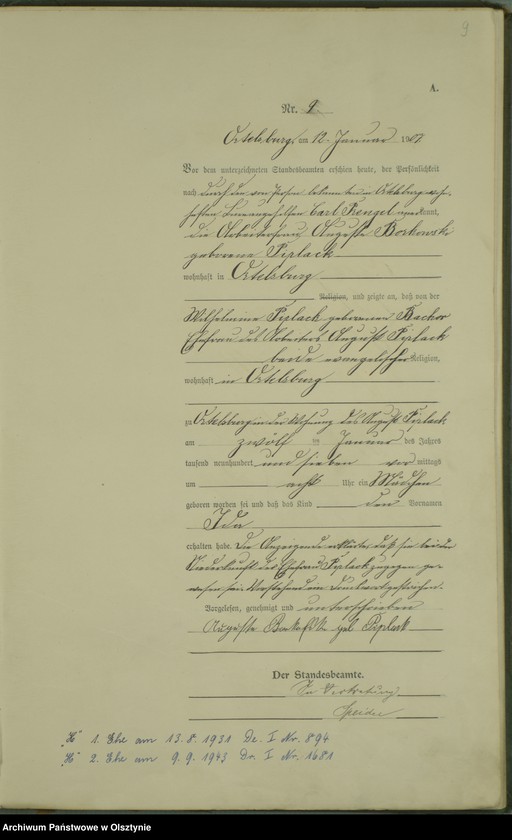 9
A.
Nr. 9.
Ortelsburg, am 12. Januar 1907
Vor dem unterzeichneten Standesbeamten erschien heute, der Persönlichkeit
nach durch den von Person bekannten in Ortelsburg wohn-
haften Bureaugehilfen Carl Rengel anerkannt,
die Arbeiterfrau Auguste Borkowski
geborene Piplack
wohnhaft in Ortelsburg
Religion, und zeigte an, daß von der
Wilhelmine Piplack geborenen Bachor
Ehefrau des Arbeiters August Piplack
beide evangelischer Religion,
wohnhaft in Ortelsburg
zu Ortelsburg in der Wohnung des August Piplack
am zwölf ten Januar des Jahres
tausend neunhundert und sieben vor mittags
um acht Uhr ein Mädchen
geboren worden sei und daß das Kind den Vornamen
Ida
erhalten habe. Die Anzeigende erklärte, daß sie bei der
Niederkunft der Ehefrau Piplack zugegen ge-
wesen sei. Vorstehend ein Druckwort gestrichen.
Vorgelesen, genehmigt und unterschrieben
Auguste Borkofski geb Piplack
Der Standesbeamte.
In Vertretung
"H" 1. Ehe am 13.8.1931 De. I Nr. 894
"H" 2. Ehe am 9.9.1943 Dr. I Nr. 1681
Archiwum Państwowe w Olsztynie